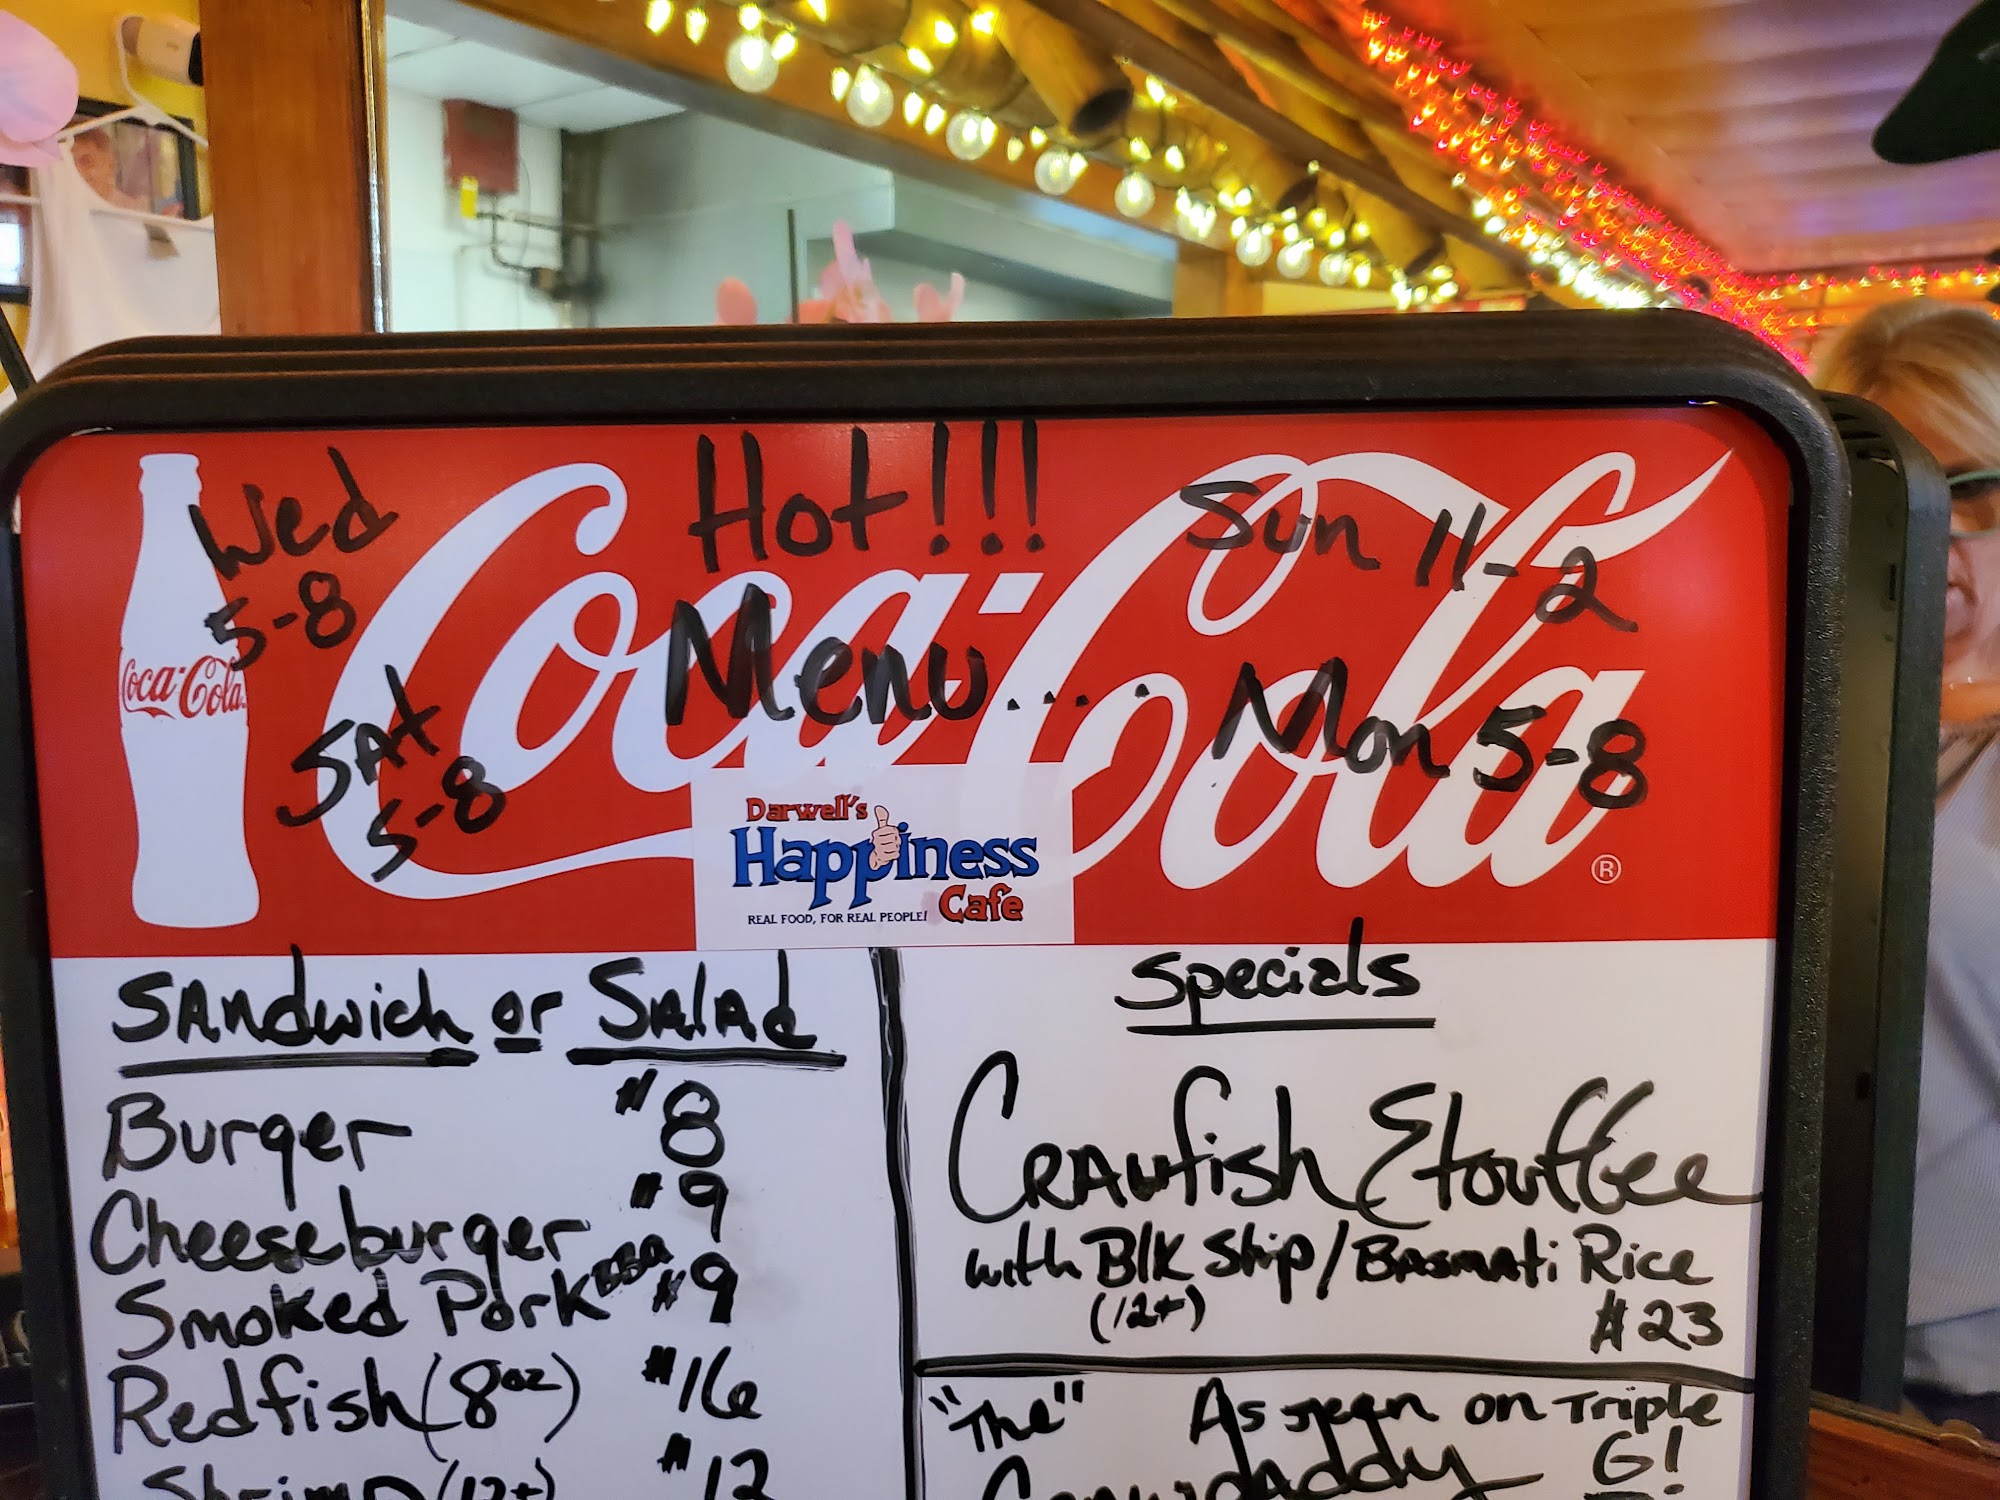 Wed
5-8
Hot!!!
Menu....
Sun 11-2
Mon 5-8
Sat
5-8
Coca-Cola
Coca-Cola
®
Darwell's
Happiness
Cafe
REAL FOOD, FOR REAL PEOPLE!
Sandwich or Salad
Burger $8
Cheeseburger $9
Smoked Pork BBQ $9
Redfish (8oz) $16
Shrimp (12+) $12
Specials
Crawfish Etouffee
with Blk Shrip/Basmati Rice
(12+) $23
"The" As seen on Triple
G!